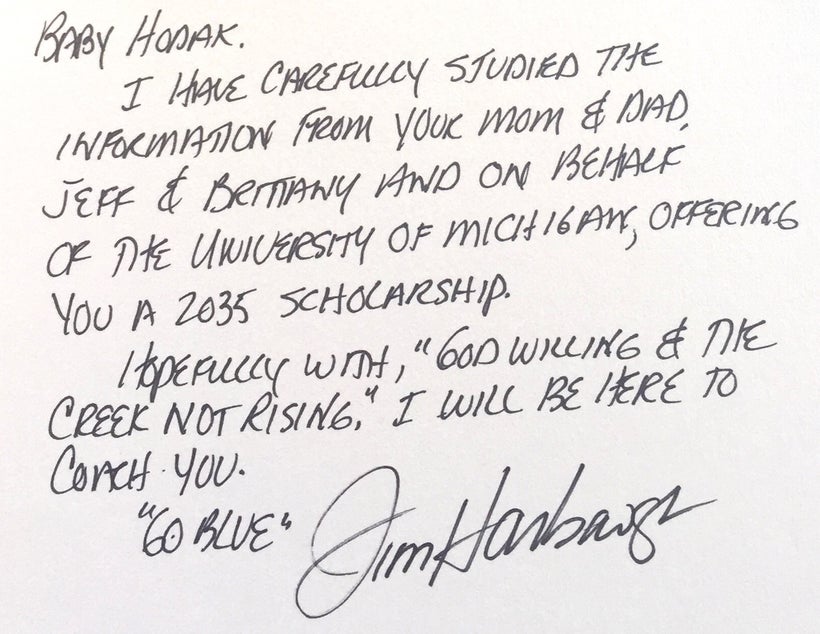 BABY HODAK.
I HAVE CAREFULLY STUDIED THE
INFORMATION FROM YOUR MOM & DAD,
JEFF & BRITTANY AND ON BEHALF
OF THE UNIVERSITY OF MICHIGAN, OFFERING
YOU A 2035 SCHOLARSHIP.
HOPEFULLY WITH, "GOD WILLING & THE
CREEK NOT RISING." I WILL BE HERE TO
COACH YOU.
"GO BLUE" Jim Harbaugh